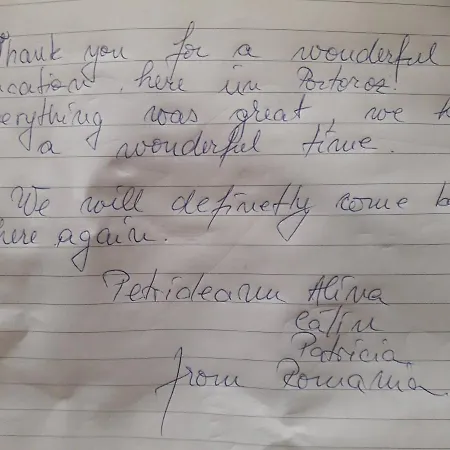 Thank you for a wonderful
vacation here in Portoroz.
everything was great, we h
a wonderful time.
We will definetly come b
here again.
Petrideanu Alina
Cătălin
Patricia
from Romania.